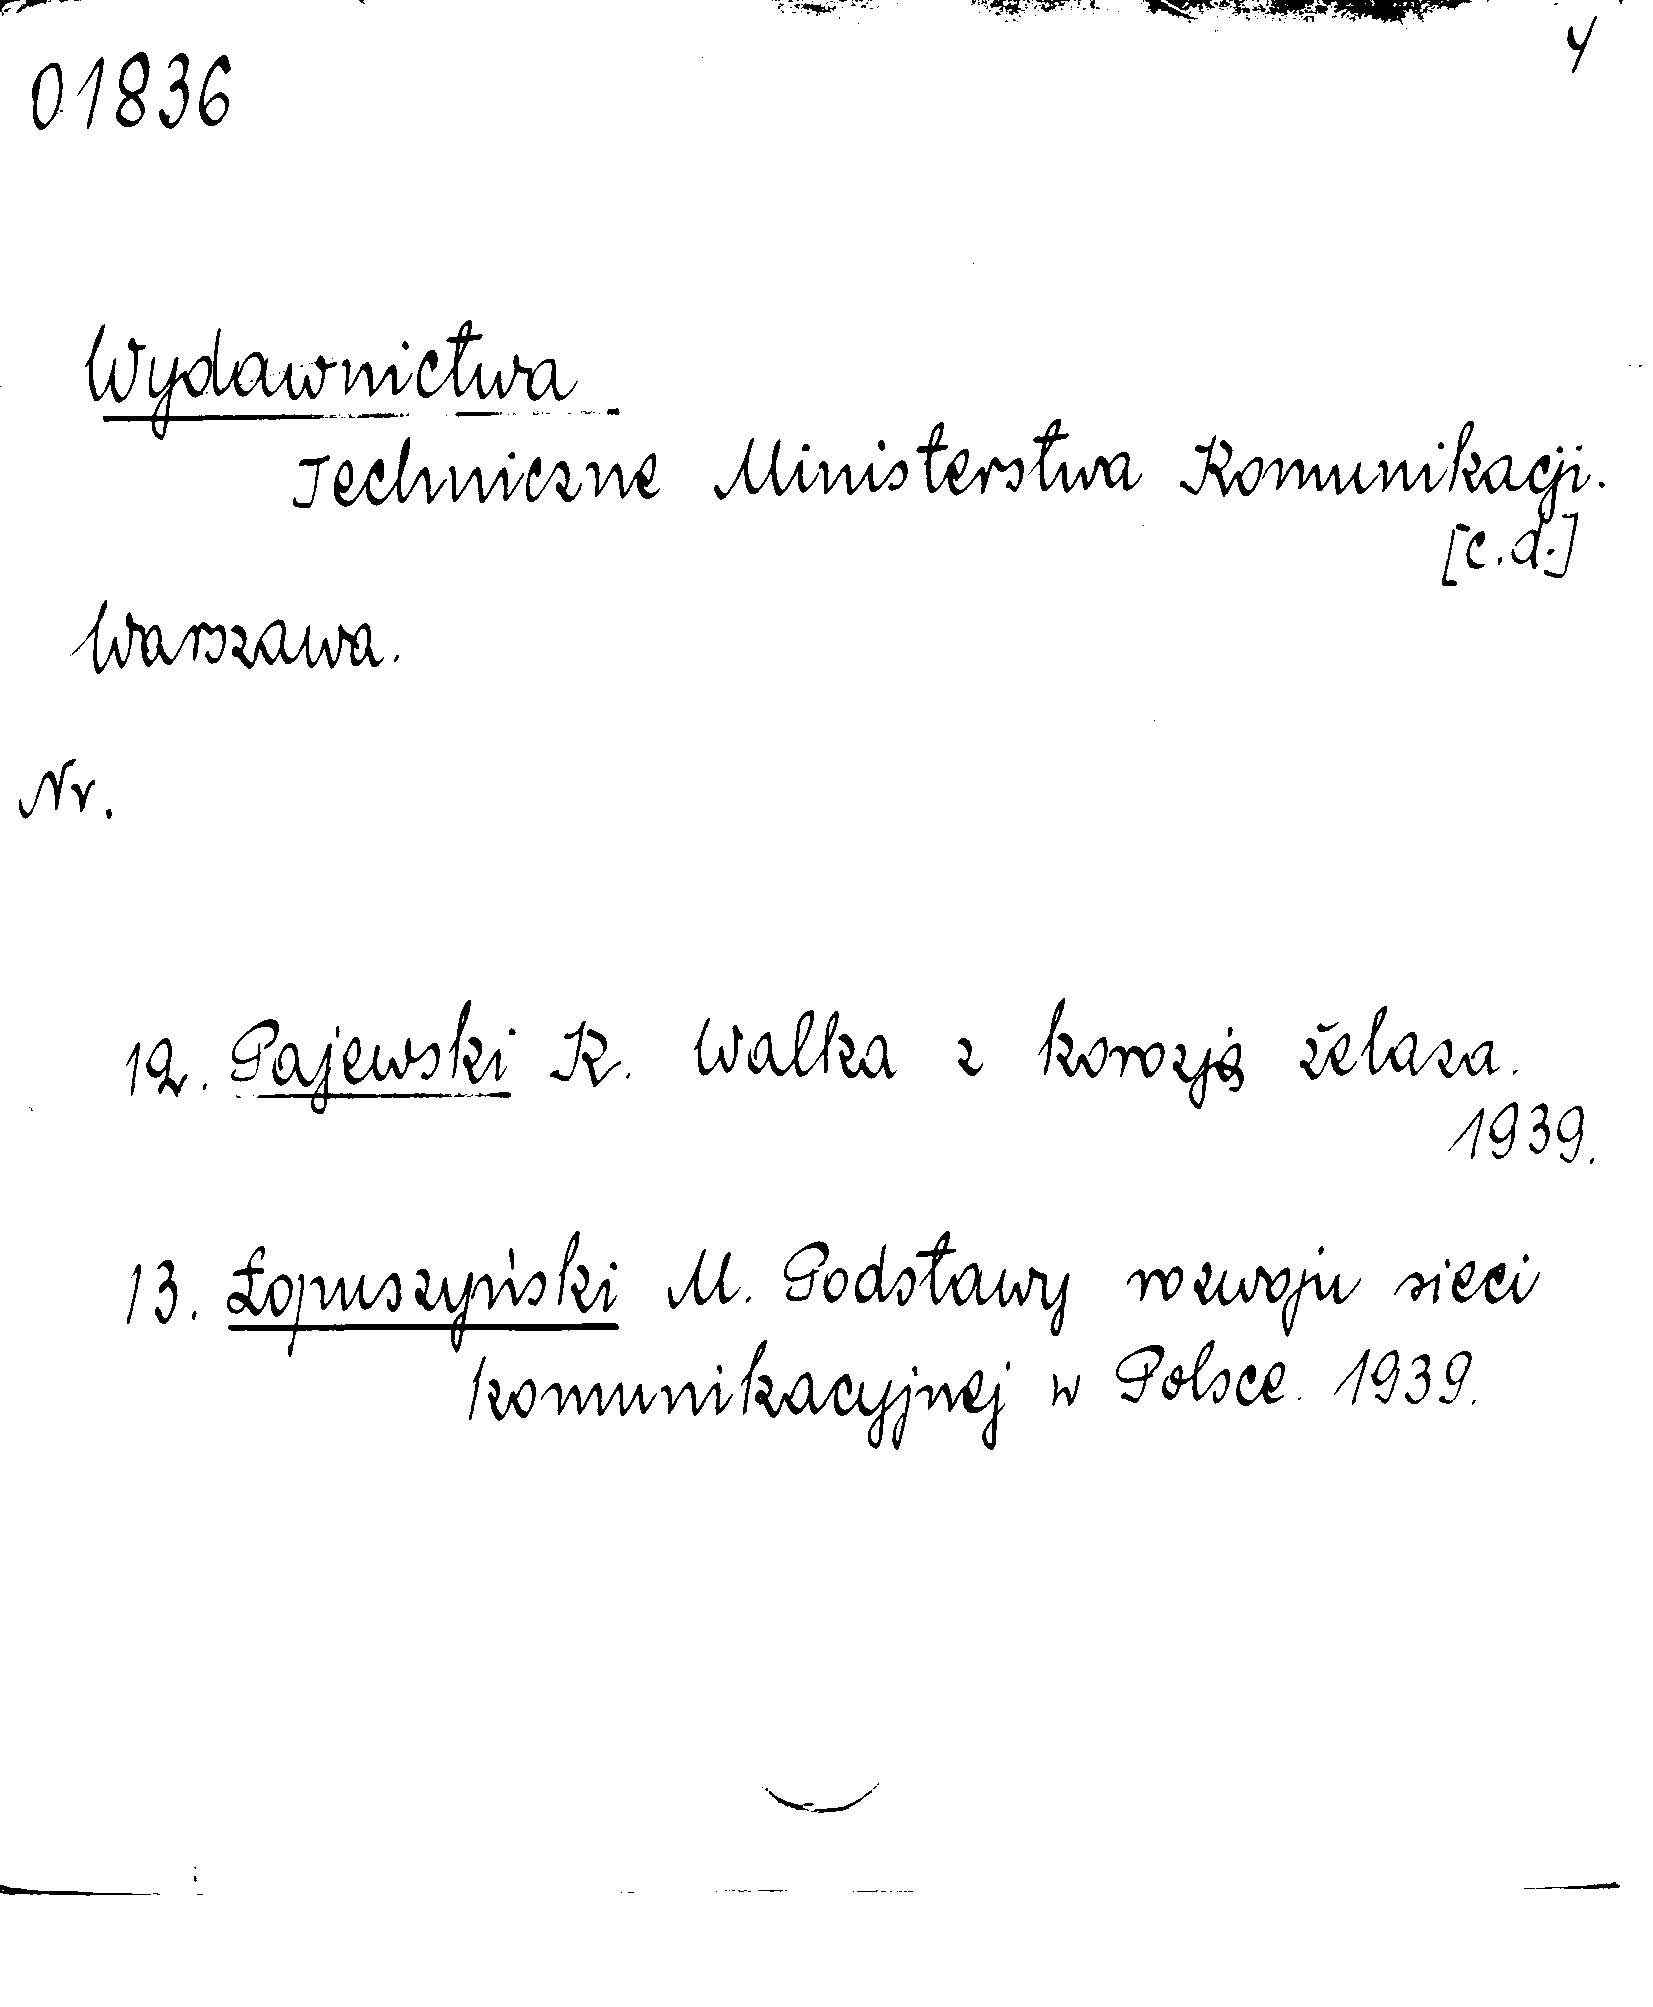 01836
4
Wydawnictwa
Techniczne Ministerstwa Komunikacji.
[c.d.]
Warszawa.
Nr.
12. Pajewski K. Walka z korozją żelaza.
1939.
13. Łopuszyński M. Podstawy rozwoju sieci
komunikacyjnej w Polsce. 1939.